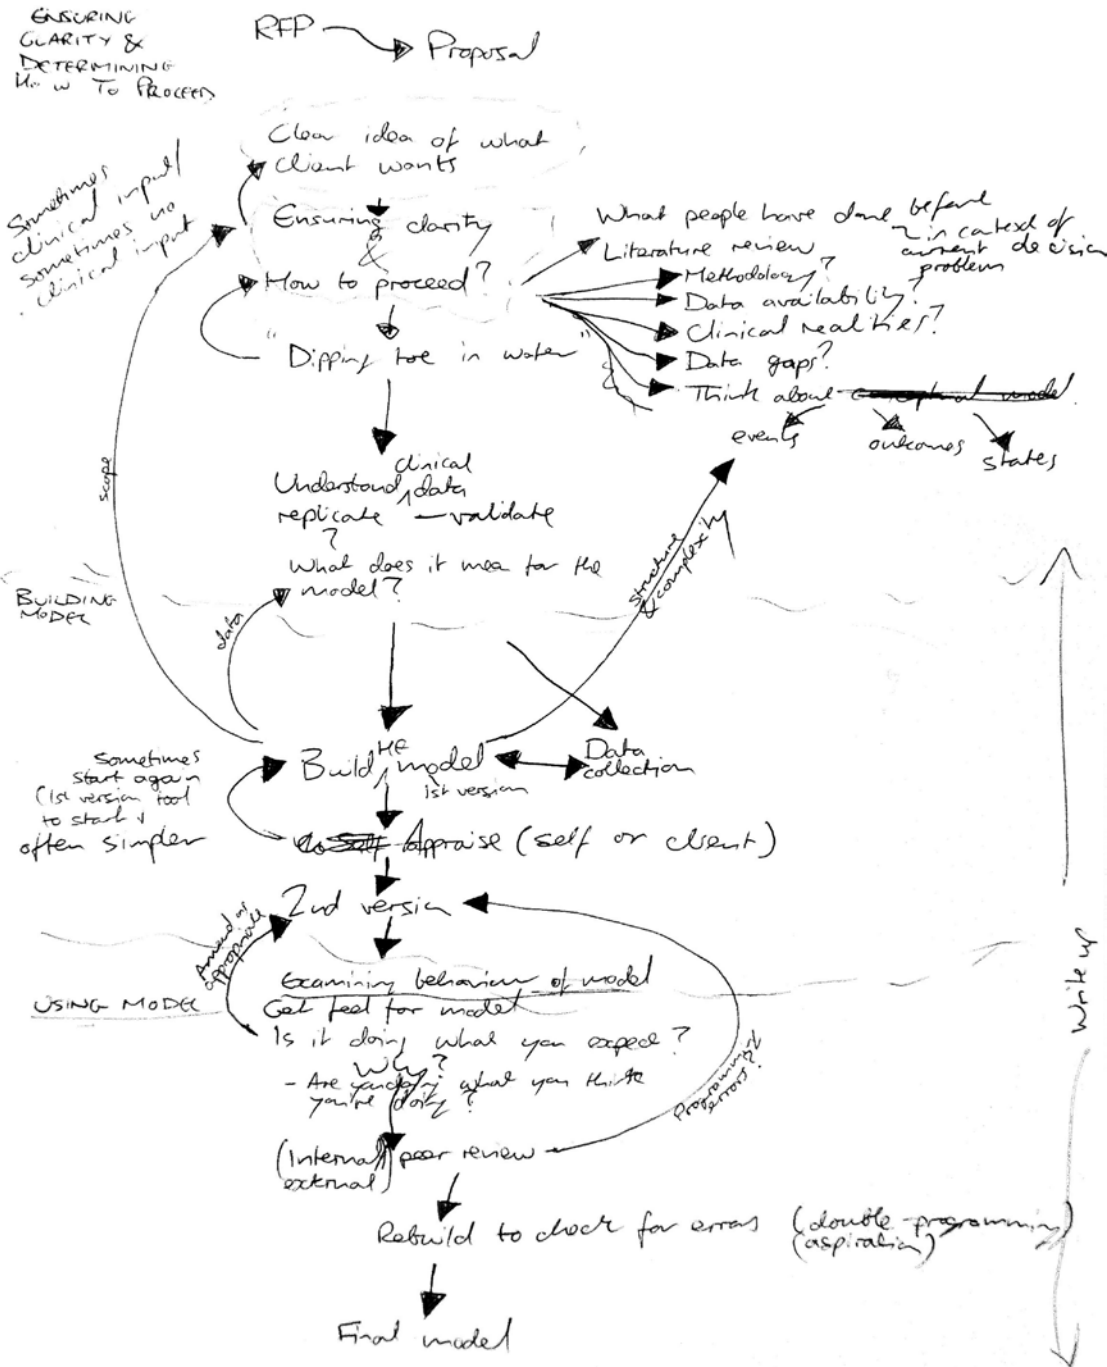 ENSURING
CLARITY &
DETERMINING
HOW TO PROCEED
RFP
Proposal
Clear idea of what
client wants
Sometimes
clinical input/
sometimes no
clinical input
Ensuring clarity
&
How to proceed?
"Dipping toe in water"
What people have done before
in context of
current decision
problem
Literature review
Methodology?
Data availability?
Clinical realities?
Data gaps?
Think about conceptual model
events
outcomes
states
scope
clinical
Understand data
replicate - validate
?
What does it mean for the
model?
structure
& complexity
BUILDING
MODEL
data
HE
Build model
1st version
Data
collection
Sometimes
start again
(1st version tool
to start
often simpler
Appraise (self or client)
2nd version
Amend as
appropriate
Examining behaviour of model
USING MODEL
Get feel for model
Is it doing what you expect?
Why?
- Are you doing what you think
you're doing?
Programming
errors?
(Internal/ peer review
external)
Rebuild to check for errors (double-programming)
(aspiration)
Final model
Write up